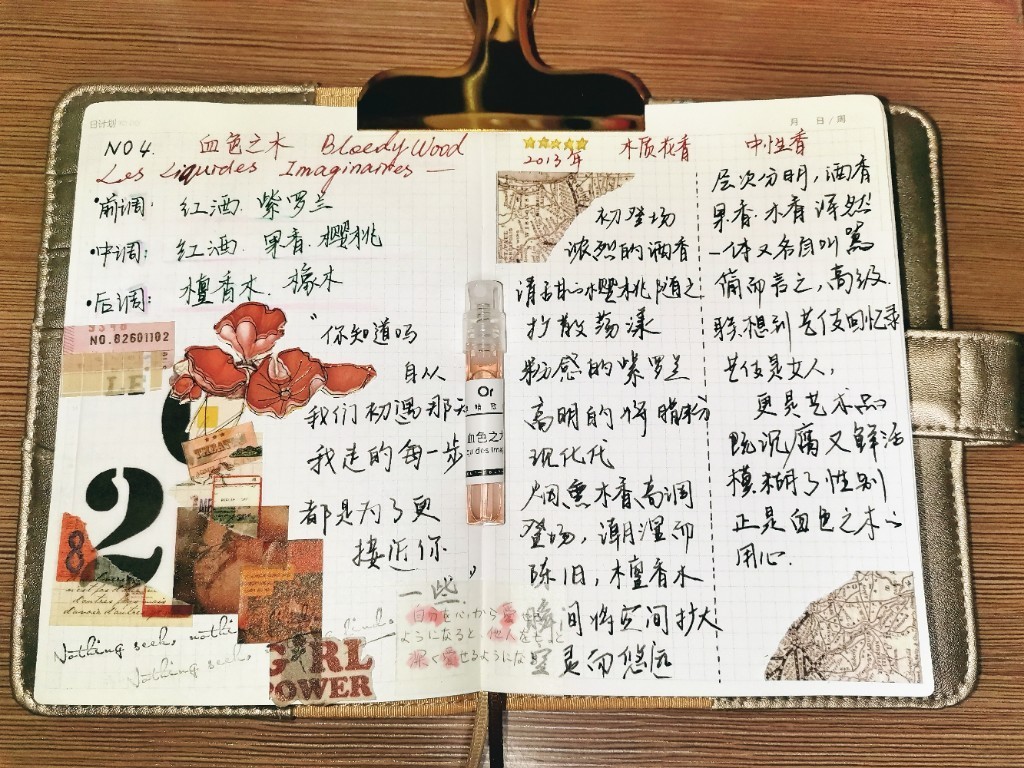 日计划
NO 4. 血色之木 Bloody Wood
Les Liquides Imaginaires —
•前调: 红酒. 紫罗兰
•中调: 红酒. 果香. 樱桃
•后调: 檀香木. 橡木
NO.82601102
LE
“你知道吗
自从
我们初遇那天
我走的每一步
都是为了更
接近你
”
2
8
Nothing seek,
Nothing seek,
GIRL
POWER
一些
自分を心から愛
ようになると、他人をもっと
深く愛せるようにな
Or
血色之
2013年 木质花香 中性香
初登场
浓烈的酒香
清甜心樱桃随之
扩散荡漾
粉感的紫罗兰
高明的将脂粉
现代化
烟熏木香高调
登场, 潮湿而
陈旧, 檀香木
瞬间将空间扩大
空灵而悠远
月 日/周
层次分明, 酒香
果香. 木香浑然
一体又各自叫嚣
简而言之, 高级.
联想到艺伎回忆录
艺伎是女人,
更是艺术品
既沉腐又鲜活
模糊了性别
正是血色之木的
用心.